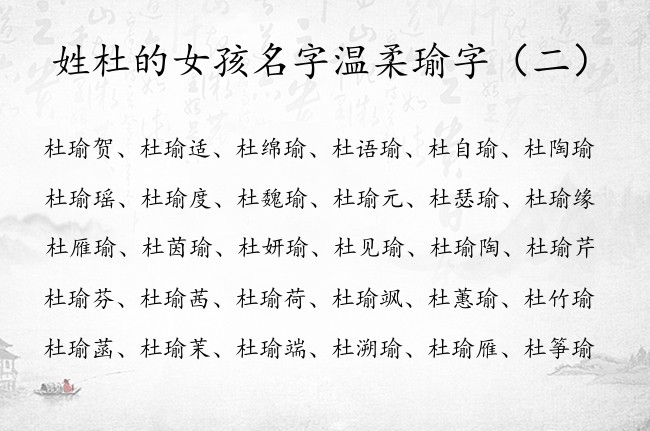 姓杜的女孩名字温柔瑜字（二）
杜瑜贺、杜瑜适、杜绵瑜、杜语瑜、杜自瑜、杜陶瑜
杜瑜瑶、杜瑜度、杜魏瑜、杜瑜元、杜瑟瑜、杜瑜缘
杜雁瑜、杜茵瑜、杜妍瑜、杜见瑜、杜瑜陶、杜瑜芹
杜瑜芬、杜瑜茜、杜瑜荷、杜瑜飒、杜蕙瑜、杜竹瑜
杜瑜菡、杜瑜茉、杜瑜端、杜溯瑜、杜瑜雁、杜筝瑜